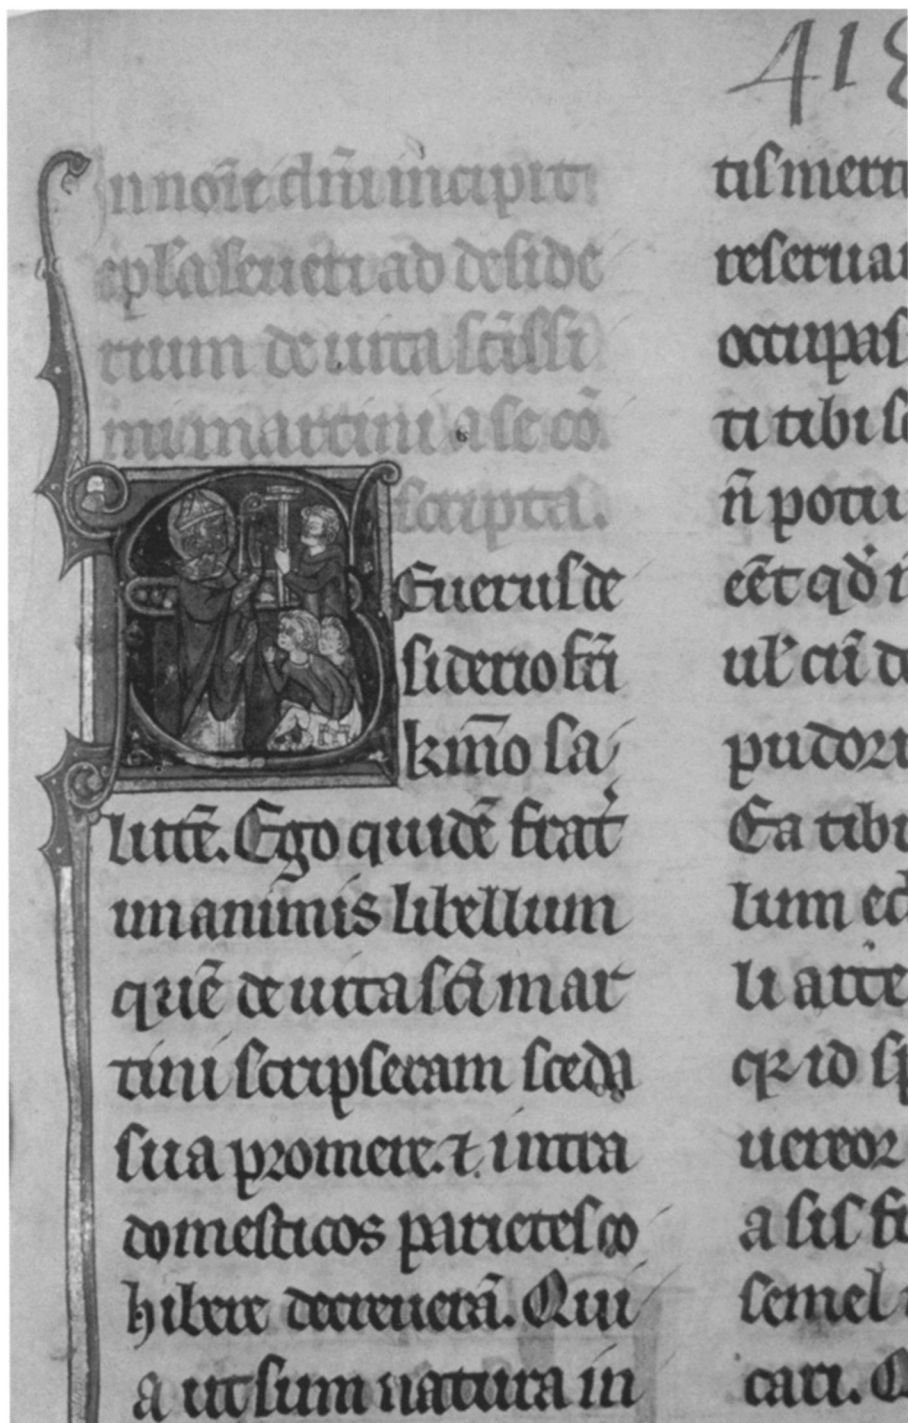 418
In noīe dn̄i incipit
epl̄a seueri ad deside
rium de uita sc̄issi
mi martini a se cō
scripta.
Seuerus de
siderio frī
kmō sa
lutē. Ego quidē frat̓
unanimis libellum
quē de uita sc̄i mar
tini scripseram sceda
sua promere. ⁊ intra
domesticos parietes co
hibere decreuerā. Qui
a ut sum natura in
tis merti
reserua
occupas
ti tibi s
n̄ potu
eēt qd̓
ul̓ cū d
pudor
Ea tibi
lum ed
li arte
qꝛ id sp
uereor
a sis fr
semel
cari. Q